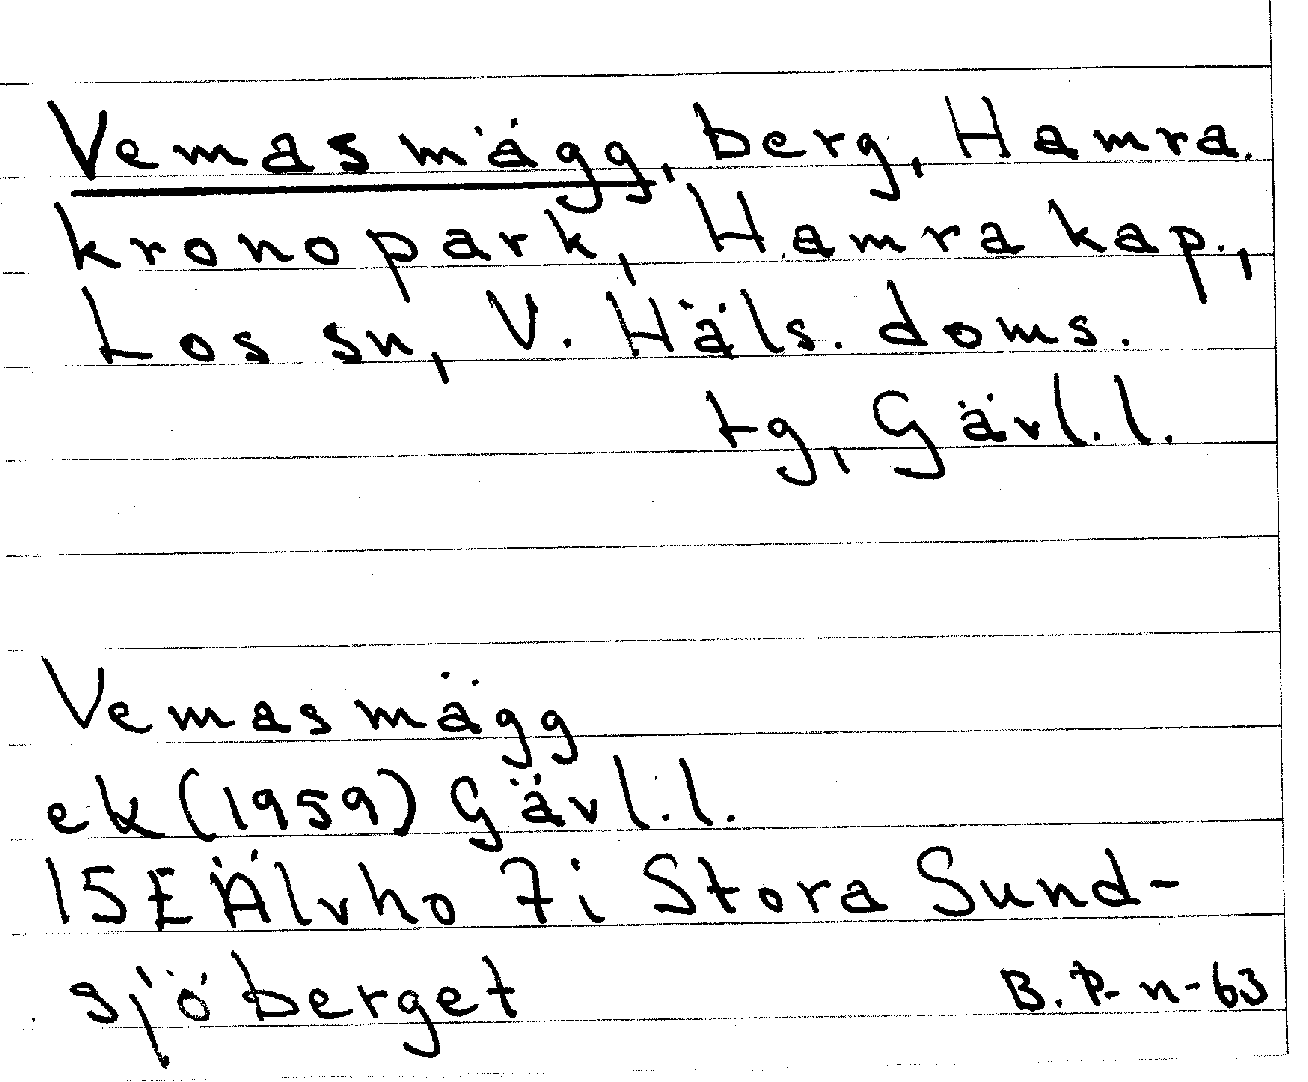 Vemasmägg, berg, Hamra
kronopark, Hamra kap.,
Los sn, V. Häls. doms.
tg, Gävl.l.
Vemasmägg
ek (1959) Gävl.l.
15E Älvho 7i Stora Sund-
sjöberget
B. P-n-63